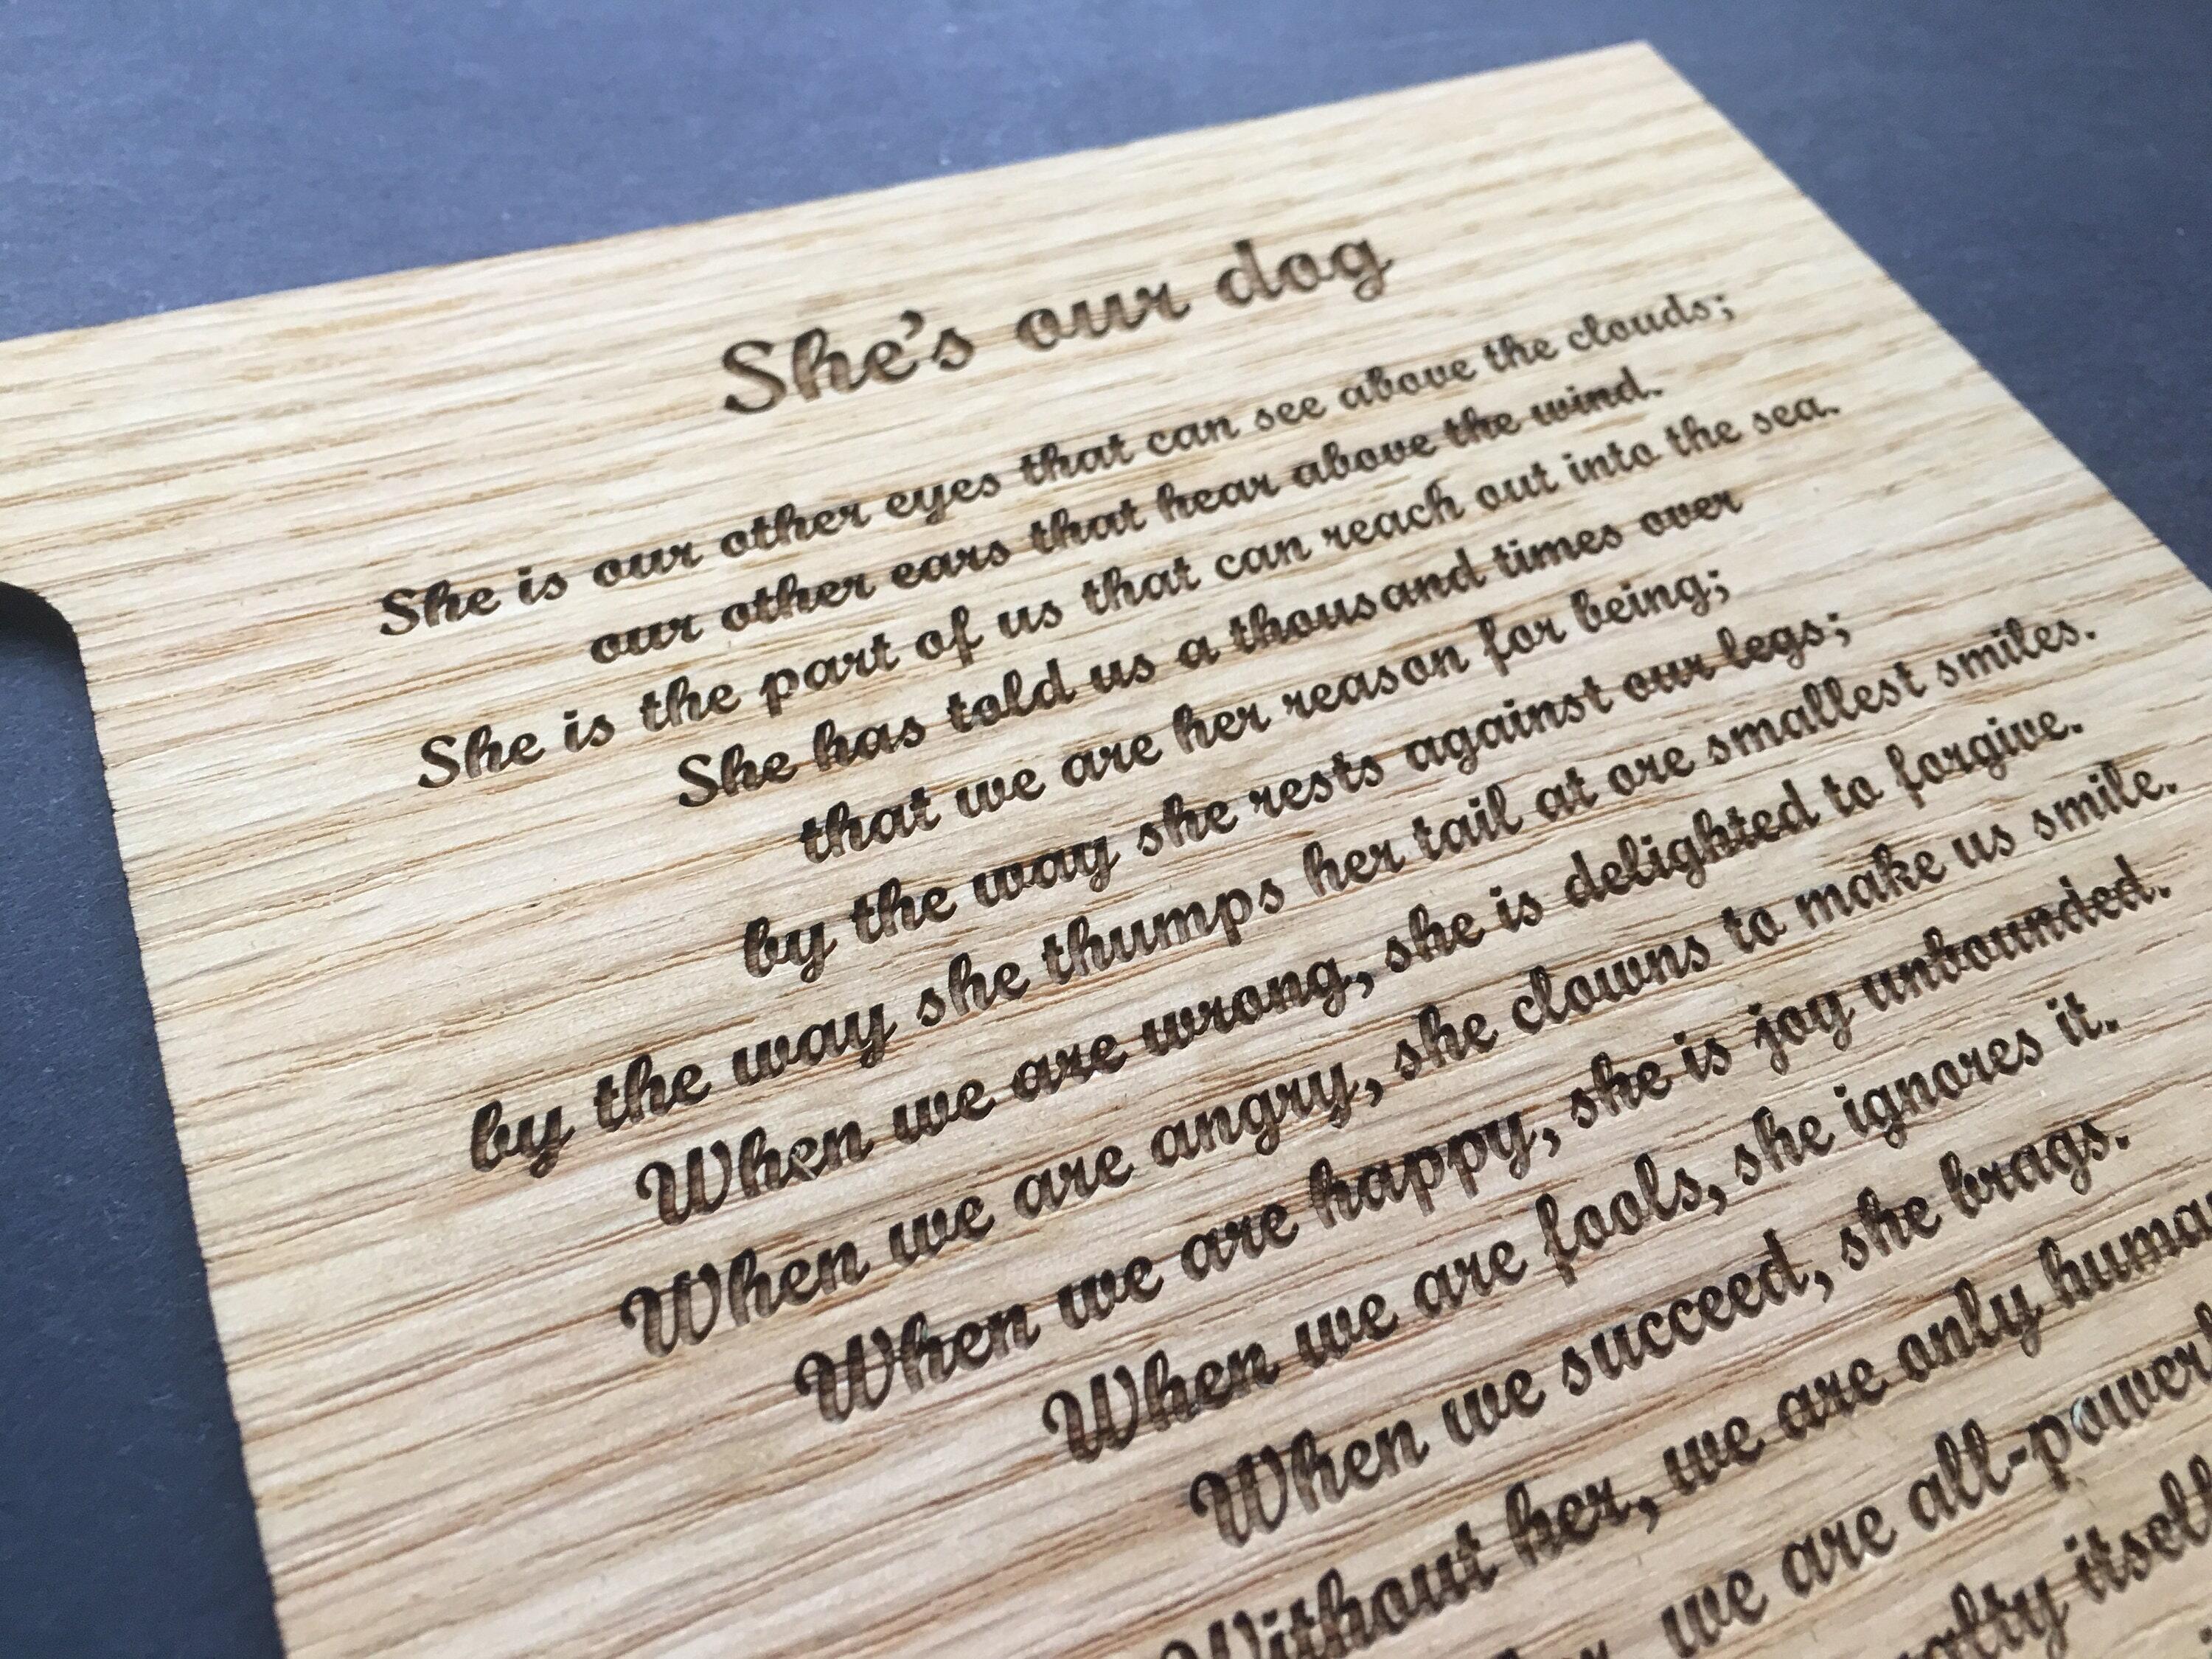 She's our dog
She is our other eyes that can see above the clouds;
our other ears that hear above the wind.
She is the part of us that can reach out into the sea.
She has told us a thousand times over
that we are her reason for being;
by the way she rests against our legs;
by the way she thumps her tail at ore smallest smiles.
When we are wrong, she is delighted to forgive.
When we are angry, she clowns to make us smile.
When we are happy, she is joy unbounded.
When we are fools, she ignores it.
When we succeed, she brags.
Without her, we are only huma
we are all-power
alty itself